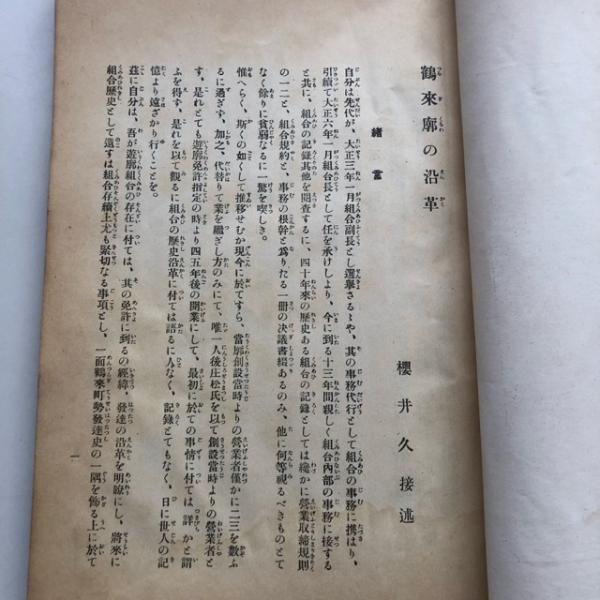 鶴來廓の沿革
櫻井久接述
緒言
自分は先代が、大正三年一月組合副長として選擧さるゝや、其の事務代行として組合の事務に携はり、
引續て大正六年一月組合長として任を承けしより、今に到る十三年間親しく組合內部の事務に接する
と共に、組合の記錄其他を閱査するに、四十年來の歷史ある組合の記錄としては纔かに營業取締規則
の一二と、組合規約と、事務の根幹と爲りたる一冊の決議書綴あるのみ、他に何等視るべきものとて
なく餘りに貧弱なるに一驚を喫しき。
惟へらく、斯くの如くして推移せむか現今に於てすら、當廓創設當時よりの營業者僅かに二三を數ふ
るに過ぎず、加之、代替りて業を繼ぎし方のみにて、唯一人後庄松氏を以て創設當時よりの營業者と
す、是れとても遊廓免許指定の時より四五年後の開業にして、最初に於ての事情に付ては詳かと謂
ふを得ず、是れを以て觀るに組合の歷史沿革に付ては語るに人なく、記錄とてもなく、日に世人の記
憶より遠ざかり行くことを。
茲に自分は、吾が遊廓組合の存在に付ては、其の免許に到るの經緯、發達の沿革を明瞭にし、將來に
組合歷史として遺すは組合存續上尤も緊切なる事項とし、一面鶴來町勢發達史の一隅を飾る上に於て
一